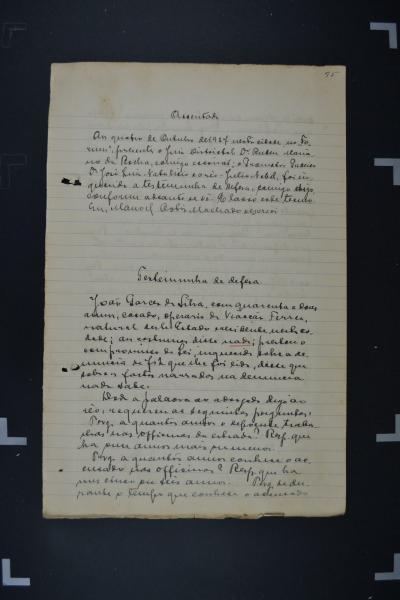 55
Assentada
Aos quatro de Outubro de 1927 nesta cidade no Fo-
rum, presente o Juiz Districtal Dr. Ruben Maria-
no da Rocha, comigo escrivão; o Promotor Publico
Dr. José Luiz Natalicio e o réo Julio Nobel, foi in-
quirida a testemunha de defesa, comigo
conforme adeante se vê. E lavro este termo
Eu, Manoel Machado escrivão
Testemunha de defesa
João Garcez da Silva, com quarenta e dous
annos, casado, operario da Viação Ferrea,
natural deste Estado e residente nesta ci-
dade; aos costumes disse nada; prestou o
compromisso da lei, inquerido sobre a de-
nuncia de fls que lhe foi lida, disse que
sobre os factos narrados na denuncia
nada sabe.
Dada a palavra ao advogado do
réo, requereu as seguintes perguntas:
Perg. a quantos annos o depoente traba-
lha nas officinas da estrada? Resp. que
ha annos mais ou menos.
Perg. a quantos annos conhece o ac-
cusado nas officinas? Resp. que ha
uns cinco ou seis annos. Perg. se du-
rante o tempo que conhece o accusado